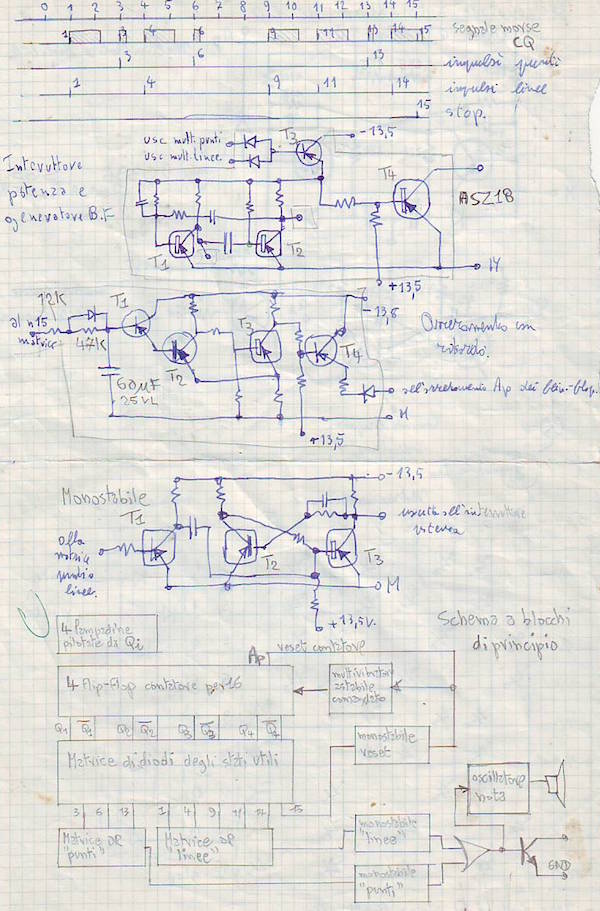 0 1 2 3 4 5 6 7 8 9 10 11 12 13 14 15
1 3 4 6 9 11 13 14 15
segnale morse
CQ
3 6 13
impulsi punti
1 4 9 11 14
impulsi linee
15
stop.
usc mult. punti
usc mult. linee.
T3
-13,5
Interruttore
potenza e
generatore B.F
T4
ASZ18
T1
T2
M
+13,5
12K
T1
al n15
matrice
47K
T2
T3
T4
60µF
25VL
Azzeramento con
ritardo.
all'azzeramento Ap dei flip-flop.
M
+13,5
-13,5
Monostabile
T1
uscita all'interruttore
potenza
alla
matrice
punti o
linee.
T2
T3
M
+13,5V.
4 lampadine
pilotate da Qi
Schema a blocchi
di principio
Ap
reset contatore
4 flip-flop contatore per 16
multivibratore
astabile
comandato
Q1 Q̅1 Q2 Q̅2 Q3 Q̅3 Q4 Q̅4
monostabile
reset
Matrice di diodi degli stati utili
oscillatore
nota
3 6 13 1 4 9 11 14 15
Matrice OR
"punti"
Matrice OR
"linee"
monostabile
"linee"
monostabile
"punti"
GND